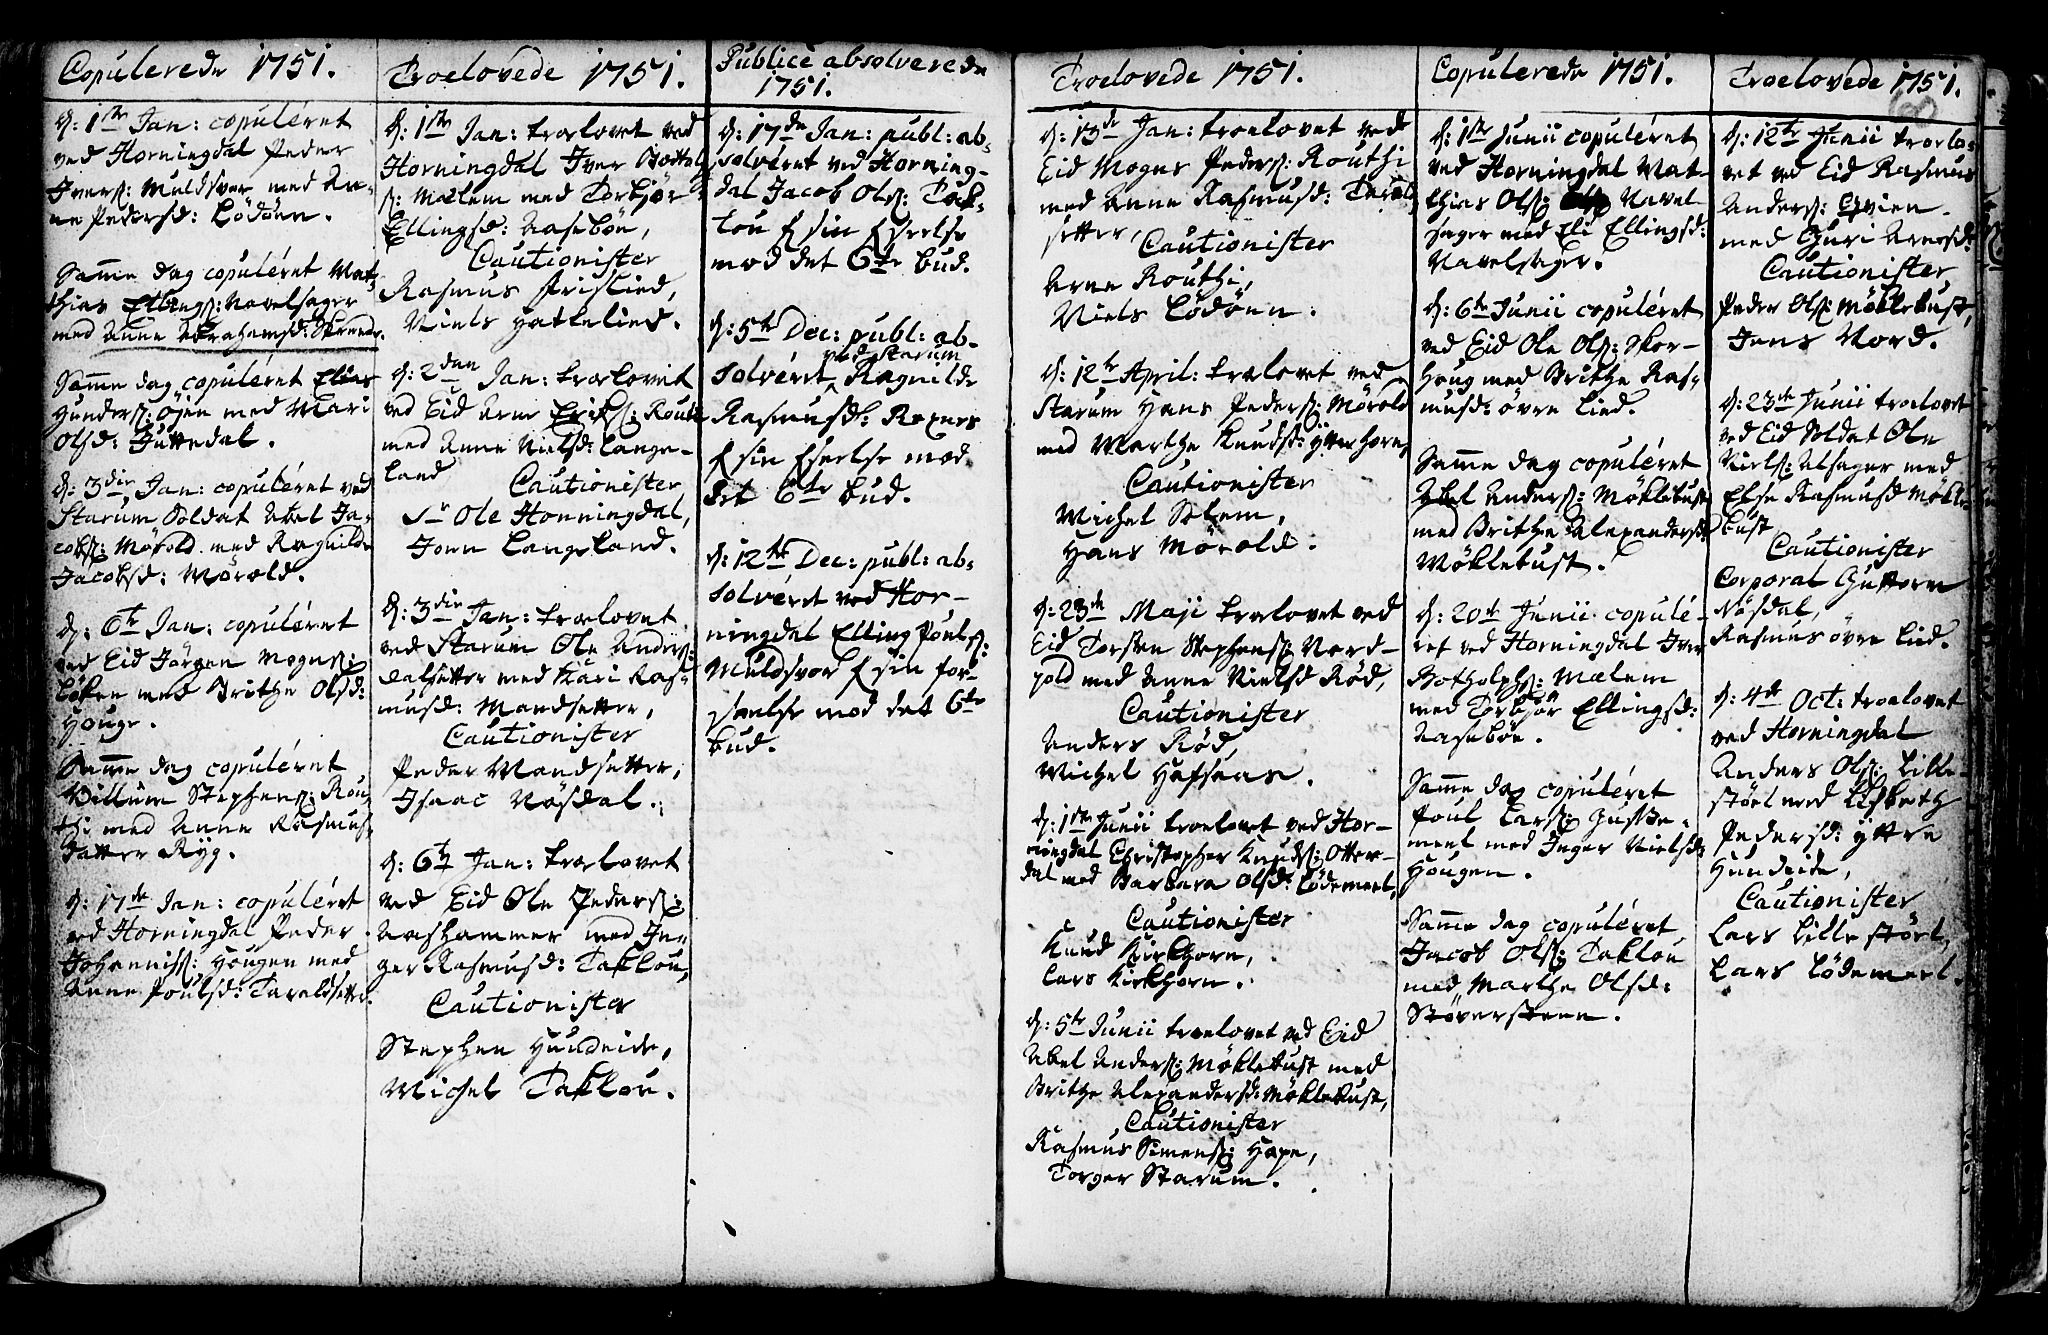 Copulerede 1751.
d: 1ste Jan: copuléret
ved Horningdal Peder
Ivers: Muldsvor med An-
ne Pedersd: Lödöen.
Samme dag copuléret Mat-
thias Ellings: Navelsager
med Anne Abrahamsd:
Samme dag copuléret Elias
Hunders: Öjen med Mari
Olsd: Juttedal.
d: 3die Jan: copuléret ved
Starum Soldat Abel Ja-
cobs: Mörold med Ragnilde
Jacobsd: Mörold.
d: 6te Jan: copuléret
ved Eid Jörgen Mogens:
Löken med Brithe Olsd:
Houge.
Samme dag copuléret
Villum Stephens: Rou-
thi med Anne Rasmus-
datter Ryg.
d: 17de Jan: copuléret
ved Horningdal Peder
Johanniss: Hougen med
Anne Poulsd: Taraldsetter.
Troelovede 1751.
d: 1ste Jan: troelovet ved
Horningdal Iver
s: Mælem med Torbjör
Ellingsd: Aasebön,
Cautionister
Rasmus Frislied,
Niels Hattelied.
d: 2den Jan: troelovet
ved Eid Arne Eriks: Routhi
med Anne Nielsd: Lange-
land
Cautionister
Sr Ole Honningdal,
Joen Langeland.
d: 3die Jan: troelovet
ved Starum Ole Anders:
Dalsetter med Kari Ras-
musd: Mandsetter,
Cautionister
Peder Mandsetter,
Isaac Nösdal.
d: 6te Jan: troelovet
ved Eid Ole Peders:
Aashammer med In-
ger Rasmusd: Taklou,
Cautionister
Stephen Hundeide,
Michel Taklou.
Publice absolverede
1751.
d: 17de Jan: publ: ab-
solvéret ved Horning-
dal Jacob Ols: Tak-
lou f sin Forseelse
mod det 6te bud.
d: 5te Dec: publ: ab-
ved Starum
solvéret Ragnilde
Rasmusd: Roxnes
f sin Forseelse mod
det 6te bud.
d: 12te Dec: publ: ab-
solvéret ved Hor-
ningdal Elling Pouls:
Muldsvor f sin for-
seelse mod det 6te
bud.
Troelovede 1751.
d: 13de Jan: troelovet ved
Eid Mogns Peders: Routhi
med Anne Rasmusd: Tarald-
setter,
Cautionister
Arne Routhi,
Niels Lödöen.
d: 12te April: troelovet ved
Starum Hans Peders: Mörold
med Marthe Knudsd: ytterhorn,
Cautionister
Michel Solem,
Hans Mörold.
d: 23de Maji troelovet ved
Eid Torsten Stephens: Nord-
pold med Anne Nielsd Röd,
Cautionister
Anders Röd,
Michel Hafsaas.
d: 1ste Junii troelovet ved Hor-
ningdal Christopher Knuds: Otter-
dal med Barbara Olsd: Lödemeel,
Cautionister
Knud Kirkhorn,
Lars Kirkhorn.
d: 5te Junii troelovet ved Eid
Abel Anders: Möklebust med
Brithe Alexandersd: Möklebust,
Cautionister
Rasmus Simens: Hope,
Torger Starum.
Copulerede 1751.
d: 1ste Junii copuléret
ved Horningdal Mat-
thias Ols: Navel-
sager med Eli Ellingsd:
Navelsager.
d: 6te Junii copuléret
ved Eid Ole Ols: Skor-
houg med Brithe Ras-
musd: övre Lied.
Samme dag copuléret
Abel Anders: Möklebust
med Brithe Alexandersd:
Möklebust.
d: 20de Junii: copulé-
ret ved Horningdal Iver
Botholphs: Mælem
med Torbjör Ellingsd:
Aasebön.
Samme dag copuléret
Poul Lars: Gusde-
meel med Inger Nielsd:
Hougen.
Samme dag copuléret
Jacob Ols: Taklou
med Marthe Olsd:
Stöversteen.
Troelovede 1751.
d: 12te Junii troelo-
vet ved Eid Rasmus
Anders: Gvien
med Guri Arnesd:
Cautionister
Peder Ols: Möklebust,
Jens Nord.
d: 23de Junii troelovet
ved Eid Soldat Ole
Niels: Alsager med
Else Rasmusd Mökle-
bust
Cautionister
Corporal Guttorm
Nösdal,
Rasmus övre Lied.
d: 4de Oct: troelovet
ved Horningdal
Anders Ols: Lille-
störl med Lisbeth
Pedersd: yttre
Hundeide,
Cautionister
Lars Lille störl,
Lars Lödemeel.